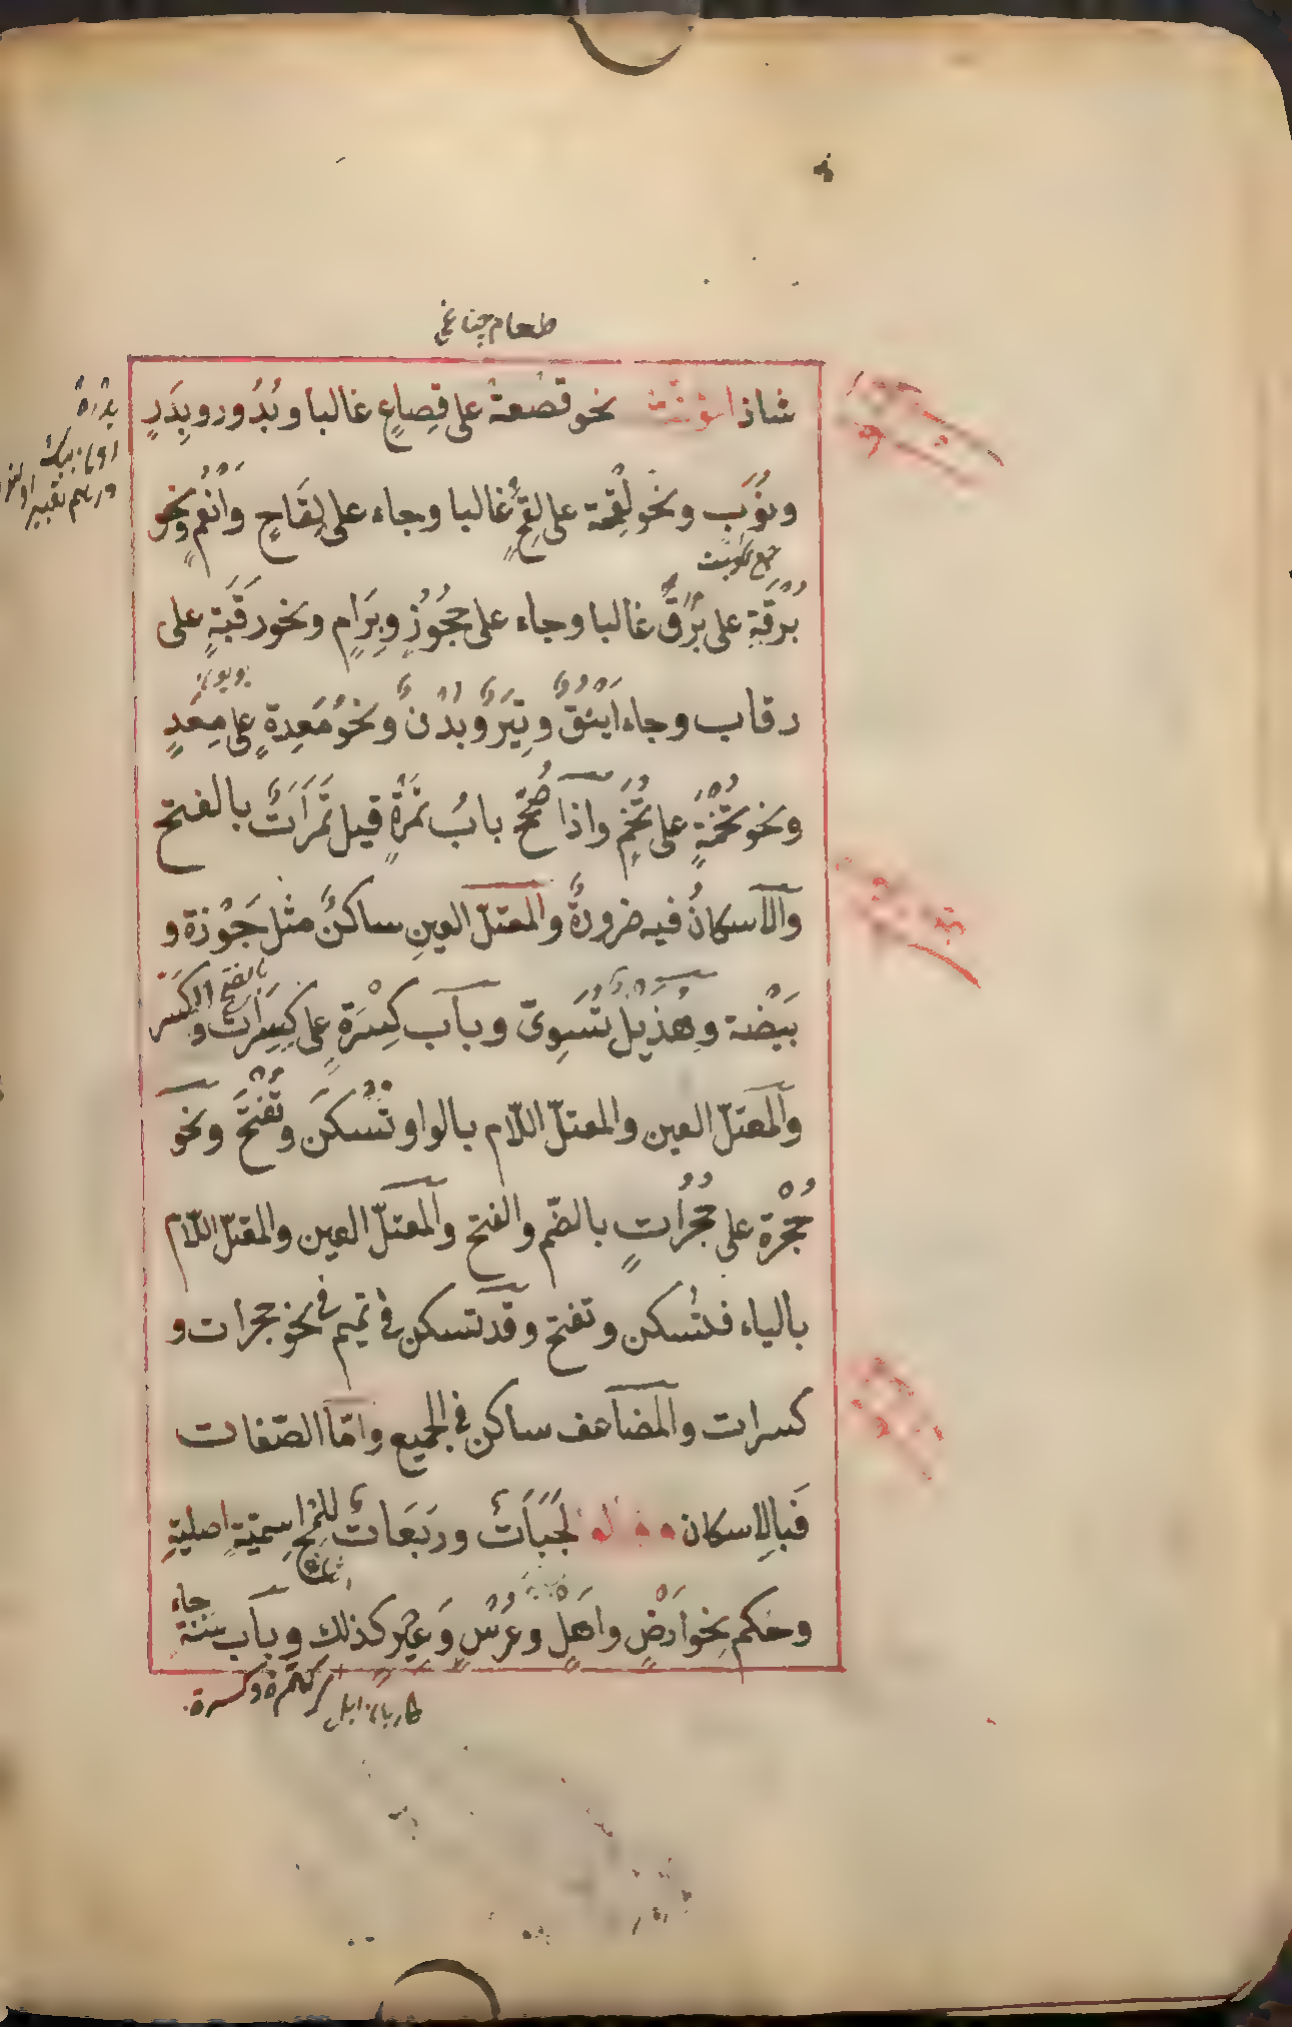 طعام چناغی
شاذ المؤنث نحو قصعة على قِصاعٍ غالبا وبُدُور وبِدَرٍ
بدرة
ونُوَبٍ ونحو لِقْحة على لِقَحٍ غالبا وجاء على لِقَاحٍ وَاَنْعُمٍ ونحو
بُرْقَةٍ على بُرَقٍ غالبا وجاء على حُجُوزٍ وبِرَامٍ ونحو رَقَبَةٍ على
رقاب وجاء اَيْنُقٌ وتِيَرٌ وبُدْنٌ ونحو مَعِدةٍ على مِعَدٍ
ونحو تُخَمَةٍ على تُخَمٍ واذا صُحِّحَ بابُ تَمْرَةٍ قيل تَمَرَاتٌ بالفتح
والاسكانُ فيه ضرورةٌ والمعتلّ العينِ ساكنٌ مثل جَوْزة و
بَيْضة وهُذَيل تُسَوِىّ وبآب كِسْرَةٍ على كِسِرَات بالفتح والكسر
والمعتلّ العين والمعتلّ اللّام بالواو تُسْكَن وتُفْتَح ونحو
حُجْرة على حُجُرَاتٍ بالضّم والفتح والمعتلّ العين والمعتلّ اللّام
بالياء فتُسكن وتفتح وقد تسكن فى تميم فى نحو حجرات و
كسرات والمضاعف ساكن فى الجميع وامّا الصّفات
فَبالاسكان وقالوا لَجَبَاتٌ ورَبَعَاتٌ لِلَمْحِ اسميّةٍ اصليّةٍ
وحكم نحو ارَضٍْ واَهْلٍ وعُرْسٍ وَعِيْرٍ كذلك وبآب سَنَةٍ جاء